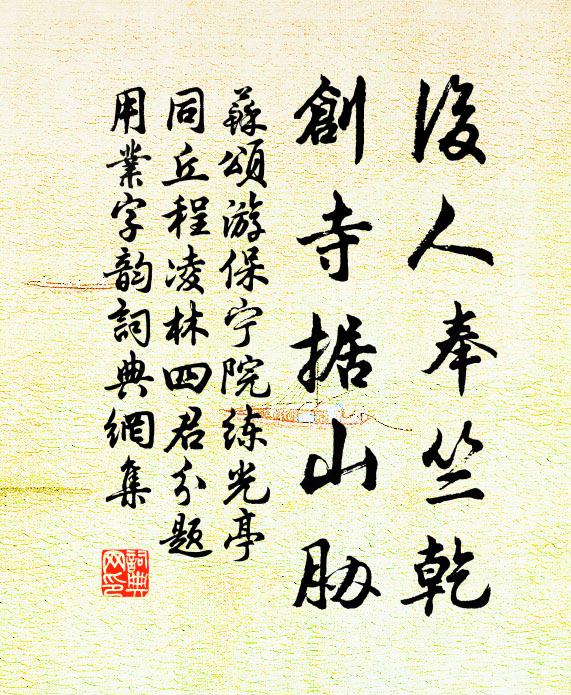 後人奉竺乾
創寺据山胁
蘇頌游保宁院练光亭
同丘程凌林四君分题
用業字韵詞典網集
詞典网印